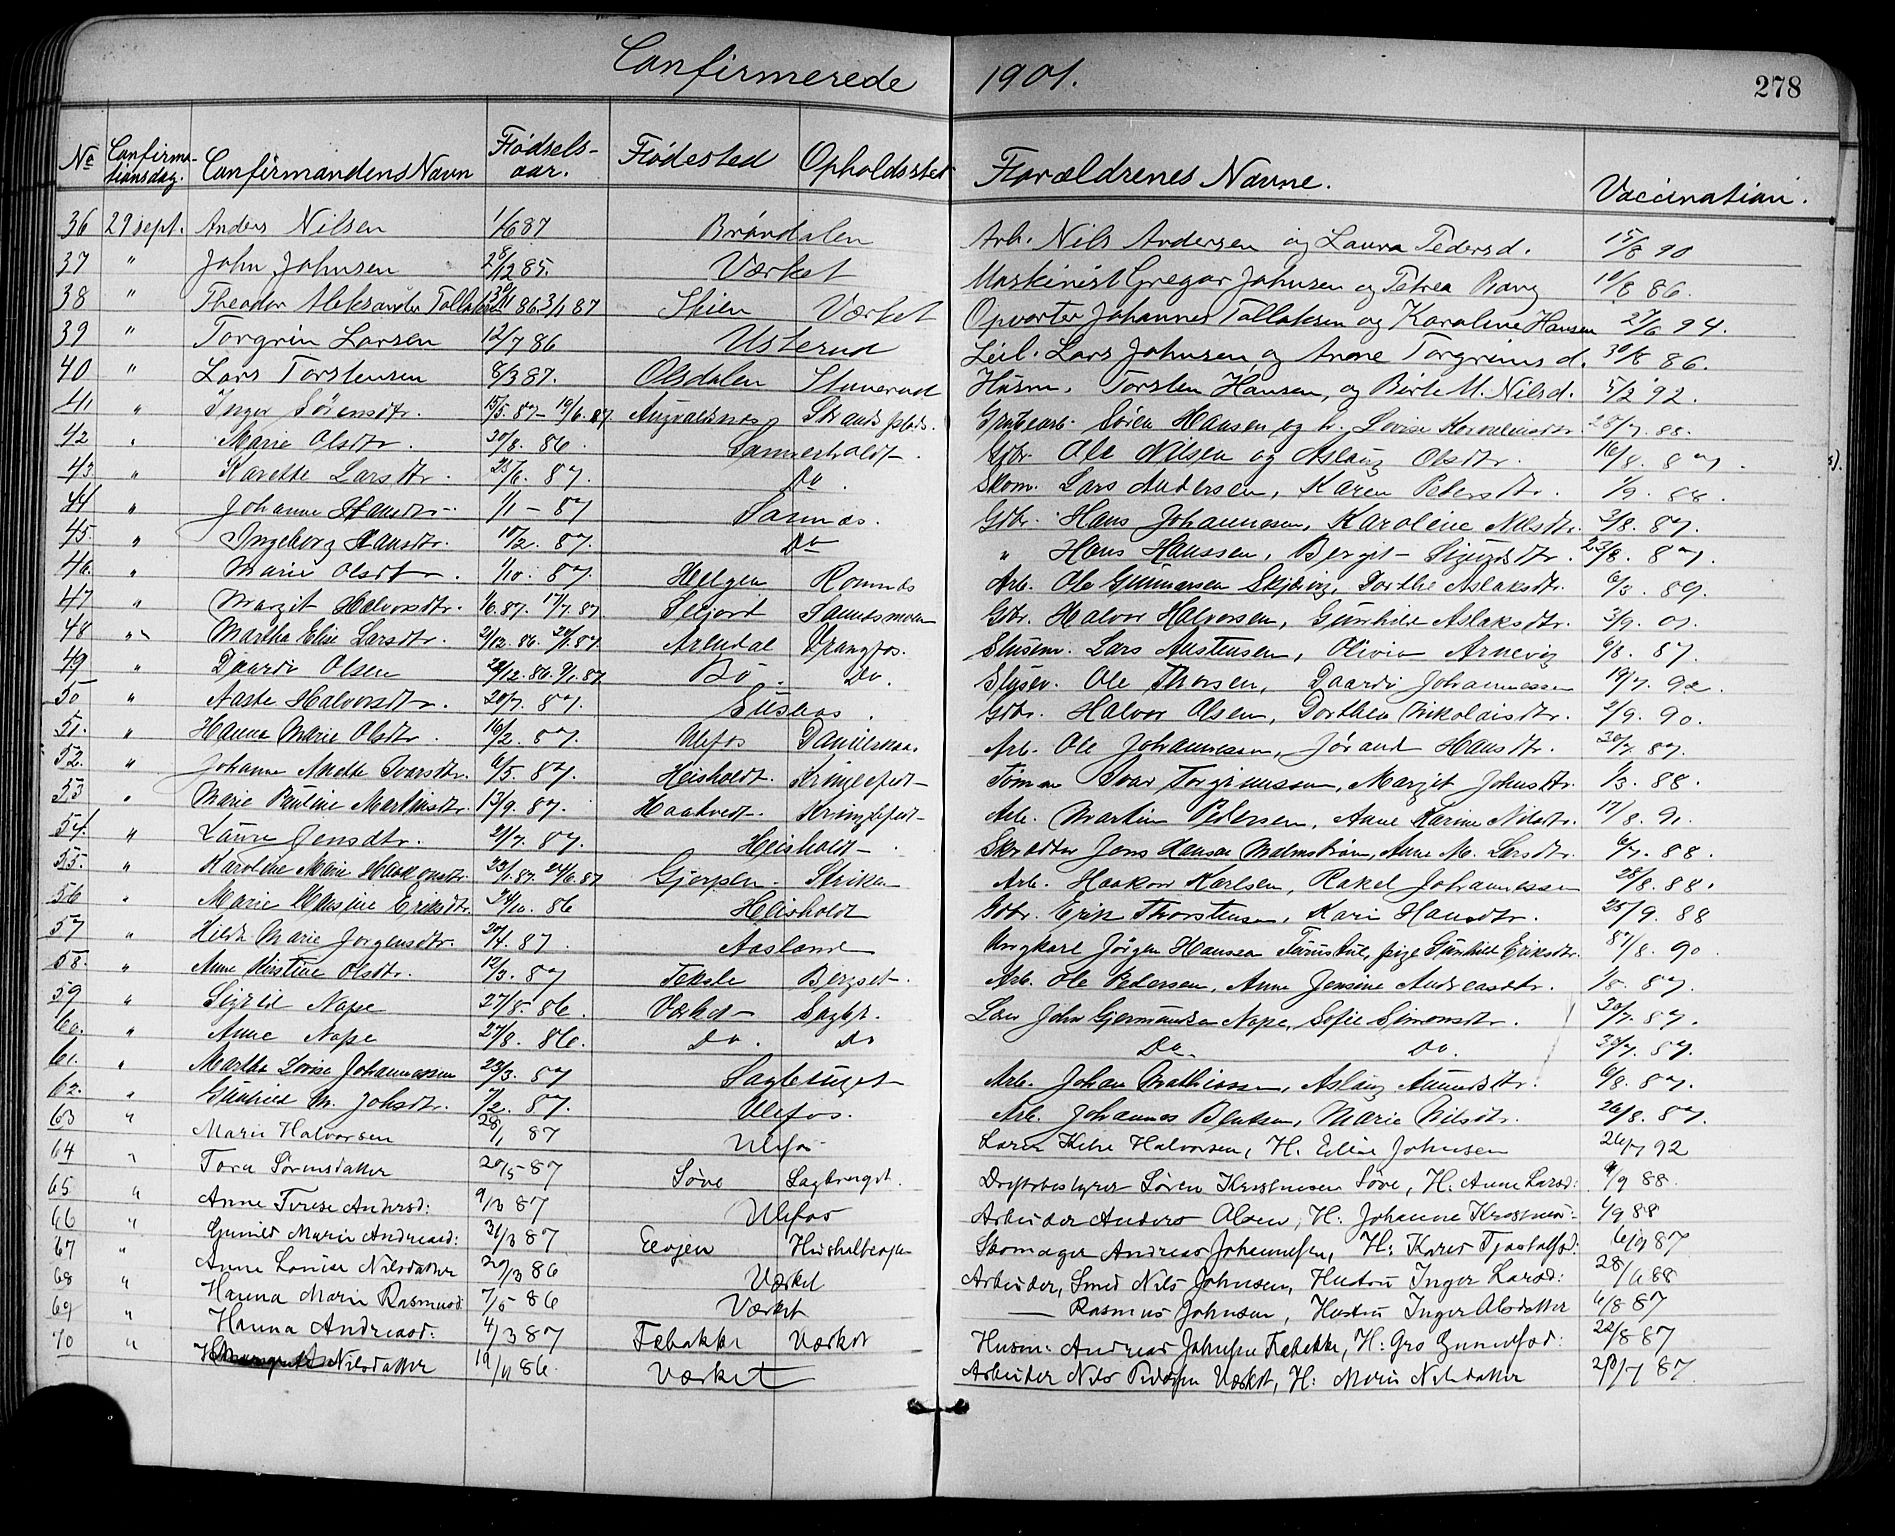 Confirmerede 1901. 278
№ Confirmationsdag. Confirmandens Navn Fødselsaar. Fødested Opholdssted Forældrenes Navne. Vaccination.
36 29 sept. Anders Nilsen 1/6 87 Brøndalen Arb. Nils Andersen og Laura Pedersd. 15/8 90
37 " John Johnsen 28/12 85. Værket Maskinist Gregar Johnsen og Petrea 10/8 86.
38 " Theodor Aleksander Tollaksen 86 3/1 87 Skien Værket Opvarter Johannes Tollaksen og Karoline Hansen 27/6 94.
39 " Torgrim Larsen 12/7 86 Usterud Leil. Lars Johnsen og Anne Torgrimsd. 30/8 86.
40 " Lars Torstensen 8/3 87. Olsdalen Husm. Torsten Hansen, og Birte M. Nilsd. 5/2 92.
41 " Inger Sörensdtr. 15/5. 87 – 19/6. 87 Strands plads. Grubearb. Sören Hansen og h. Lovise 28/7. 88.
42 " Marie Olsdtr. 20/8. 86 Sannerholdt. Gbr. Ole Nilsen og Aslaug Olsdtr. 16/8. 87.
43 " Karette Larsdtr. 23/6. 87. Do. Skom. Lars Andersen, Karen Petersdtr. 1/9. 88.
44 " Johanne Hansdtr. 1/1 – 87 Sannes. Gbr. Hans Johannesen, Karoline Nilsdtr. 3/8. 87.
45 " Ingeborg Hansdtr. 10/2. 87. Do " Hans Hanssen, Bergit Sigurdsdtr. 23/8. 87.
46. " Marie Olsdtr. 1/10. 87. Helgen Romnes Arb. Ole Gunnarsen Skjervig, Dorthe Aslaksdtr. 6/3. 89.
47 " Margit Halvorsdtr. 1/6. 87. 17/7. 87 Seljord Sannesmoen Gbr. Halvor Halvorsen, Gunhild Aslaksdtr. 3/9. 01.
48 " Martha Elise Larsdtr. 21/12. 86. 24/1. 87 Arendal Vrangfos. Slusem. Lars Austensen, Olivia Arnevig 6/8. 87.
49 " Daardi Olsen 24/12. 86. 9/1. 87 Bö. Do. Slusev. Ole Thorsen, Daardi Johannessen 19/7. 92.
50 " Aaste Halvorsdtr. 20/7. 87. Gbr. Halvor Olsen, Dorthea Nikolaisdtr. 2/9. 90.
51. " Hanna Marie Olsdtr. 16/2. 87. Ulefos Arb. Ole Johannessen, Jörand Hansdtr. 30/7. 87.
52. " Johanne Anette Ivarsdtr. 6/5. 87. Heisholdt. Kringlefet. Tömmm Ivar Torgrimssen, Margit Johnsdtr. 1/3. 88.
53 " Marie Pauline Martinsdtr. 13/9. 87. Haatvedt. Kringlefet. Arb. Martin Pedersen, Anne Karine Nilsdtr. 17/8. 91.
54. " Laura Jensdtr. 21/7. 87. Heisholdt. Skrædder Jens Hansen Malmström, Anne M. Larsdtr. 6/7. 88.
55. " Karoline Marie Haakonsdtr. 23/1. 87. 24/6. 87 Gjerpen. Striken Arb. Haakon Karlsen, Rakel Johannessen 28/8. 88.
56 " Marie Eriksdtr. 24/10. 86 Heisholdt Gbr. Erik Thorstensen, Kari Hansdtr. 25/9. 88
57 " Hilda Marie Jörgensdtr. 20/4. 87. Aasland Ungkarl Jörgen Hansen, pige Gunhild Eriksdtr. 87/8. 90
58. " Anne Kirstine Olsdtr. 12/3. 87 Bergset. Arb. Ole Pedersen, Anne Jensine Andreasdtr. 1/8. 87.
59 " Sigrid Nape 27/8. 86. Værket Sagbr. John Gjermundsen Nape, Sofie Simonsdtr. 30/7. 87.
60. " Anne Nape 27/8. 86. Do. Do Do. Do. 30/7. 87.
61. " Martha Lovise Johannessen 23/3. 87 Sagbruget. Arb. Johan Mathiassen, Aslaug Amundsdtr. 6/8. 87.
62. " Gunhild M. Johsdtr. 7/2. 87. Ulefos. Arb. Johannes Bentsen, Marie Nilsdtr. 26/8. 87.
63 " Marie Halvorsen 28/1 87 Ulefos Halvorsen, H. Eline Johnsen 26/7 92
64 " Tora Sørensdatter 20/5 87 Søve Sagbruget. Driftsbestyrer Søren Søve, H. Anne Larsd: 9/9 88.
65 " Anne Terese Andersd: 9/3 87 Ulefos Arbeider Anders Olsen, H: Johanne 1/9 88
66 " Gunild Marie Andreasd: 31/3 87 Skomager Andreas Johannesen, H: Karen 6/9 87
67 " Anne Louise Nilsdatter 20/3 86 Værket Arbeider, Smed Nils Johnsen, Hustru Inger Larsd: 28/6 88
68 " Hanna Marie Rasmusd 7/5 86 Værket — Rasmus Johnsen, Hustru Inger Olsdatter 6/8 87
69 " Hanna Andreasd: 4/3 87 Fæbakke Værket Husm: Andreas Johnsen Fæbakke, H: Gro 22/8 87
70 " Nilsdatter 19/11 86. Værket Arbeider Nils Værket, H: Maria Nilsdatter 20/7 87.